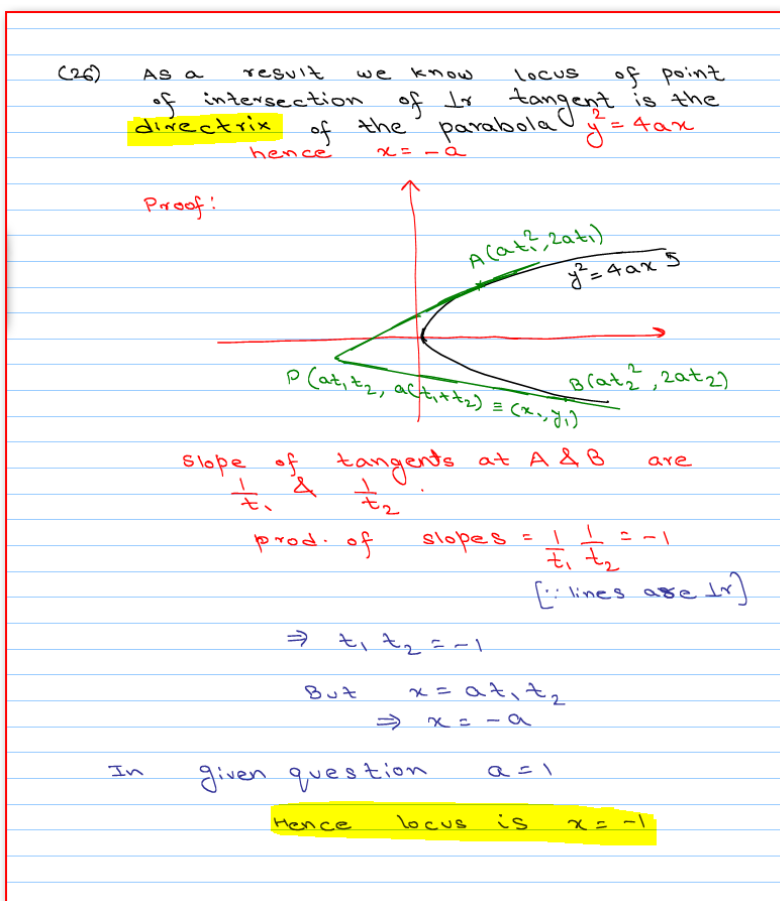 (26) As a result we know locus of point
of intersection of ⊥r tangent is the
directrix of the parabola y² = 4ax
hence x = -a
Proof:
A(at₁², 2at₁)
y² = 4ax
P(at₁t₂, a(t₁+t₂) ≡ (x₁, y₁)
B(at₂², 2at₂)
slope of tangents at A & B are
1/t₁ & 1/t₂ .
prod. of slopes = 1/t₁ 1/t₂ = -1
[∵ lines are ⊥r]
⇒ t₁ t₂ = -1
But x = at₁t₂
⇒ x = -a
In given question a = 1
Hence locus is x = -1